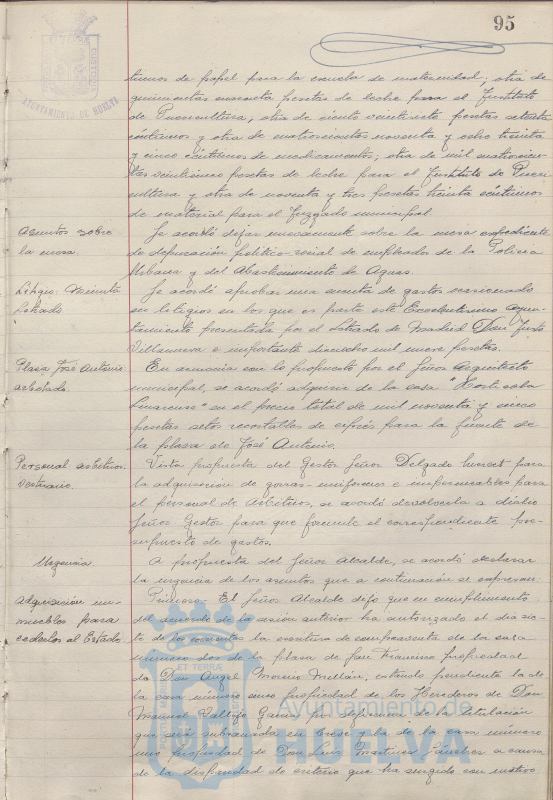 95
AYUNTAMIENTO DE HUELVA
timos de papel para la escuela de maternidad; otra de
quinientas cuarenta pesetas de leche para el Instituto
de Puericultura, otra de ciento veintisiete pesetas setenta
céntimos y otra de cuatrocientos noventa y ocho treinta
y cinco céntimos de medicamentos; otra de mil cuatrocien-
tas veinticinco pesetas de leche para el Instituto de Pueri-
cultura y otra de noventa y tres pesetas treinta céntimos
de material para el Juzgado municipal.
Asuntos sobre
la mesa.
Se acordó dejar nuevamente sobre la mesa expediente
de depuración político-social de empleados de la Policía
Urbana y del Abastecimiento de Aguas.
Litigio Minuta
Letrado
Se acordó aprobar una cuenta de gastos ocasionados
en litigios en los que es parte este Excelentísimo Ayun-
tamiento presentada por el Letrado de Madrid Don Justo
Villanueva e importante diecinueve mil nueve pesetas.
Plaza José Antonio
arbolado.
En armonía con lo propuesto por el Señor Arquitecto
municipal, se acordó adquirir de la casa "Horticola
Linarense" en el precio total de mil noventa y cinco
pesetas setos recortables de ciprés para la fuente de
la plaza de José Antonio.
Personal arbitrios.
Vestuario.
Vista propuesta del Gestor Señor Delgado para
la adquisición de gorras-uniformes e impermeables para
el personal de Arbitrios, se acordó devolverla a dicho
Señor Gestor para que formule el correspondiente pre-
supuesto de gastos.
Urgencia
A propuesta del Señor Alcalde, se acordó declarar
la urgencia de los asuntos que a continuación se expresan.
Adquisición in-
muebles para
cederlos al Estado
Primero- El Señor Alcalde dijo que en cumplimiento
del acuerdo de la sesión anterior ha autorizado el día sie-
te de los corrientes la escritura de compraventa de la casa
número dos de la plaza de San Francisco propiedad
de Don Angel Moreno Millán, estando pendiente la de
la casa número cinco propiedad de los Herederos de Don
Manuel Vallejo García por deficiencia de la titulación
que será subsanada en breve y la de la casa número
uno propiedad de Don Luis Martínez Sánchez a causa
de la disparidad de criterio que ha surgido con motivo
Ayuntamiento de
HUELVA